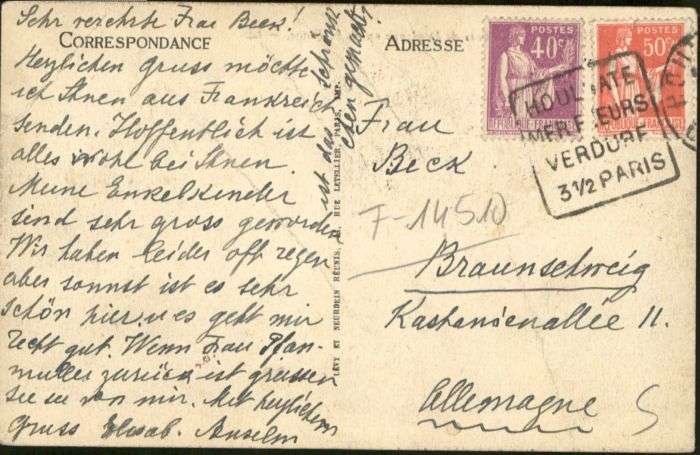 Sehr verehrte Frau Beck!
CORRESPONDANCE
Herzlichen Gruss möchte
ich Ihnen aus Frankreich
senden. Hoffentlich ist
alles wohl bei Ihnen.
Meine Enkelkinder
sind sehr gross geworden
Wir haben leider oft regen
aber sonnst ist es sehr
schön hier. u es geht mir
recht gut. Wenn Frau Pfan-
muller zurück ist grussen
sie von mir. Mit herzlichem
Gruss Elisab. Anselm
ist das schöne
gemacht?
LÉVY ET NEURDEIN RÉUNIS, RUE LETELLIER, PARIS. IMP.
ADRESSE
Frau
Beck
F-14510
Braunschweig
Kastanienallee 11.
Allemagne
POSTES
40c
POSTES
50c
HOULGATE
MER FLEURS
VERDURE
3½ PARIS